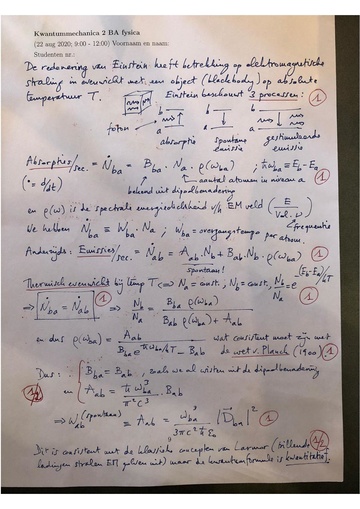 Kwantummechanica 2 BA fysica
(22 aug 2020; 9:00 - 12:00) Voornaam en naam:
Studenten nr.:
De redenering van Einstein heeft betrekking op elektromagnetische
straling in evenwicht met een object (blackbody) op absolute
temperatuur T. Einstein beschouwt 3 processen: 1
b b b
foton a a a
absorptie spontane emissie gestimuleerde emissie
Absorpties/sec. = Ṅba = Bba . Na . ρ(ωba) ; ħωba ≡ Eb - Ea
(˙ = d/dt) aantal atomen in niveau a 1
bekend uit dipoolbenadering
en ρ(ω) is de spectrale energiedichtheid v/h EM veld (E / Vol. ν)
frequentie
We hebben Ṅba ≡ Wba . Na ; Wba = overgangstempo per atoom.
Anderzijds: Emissies/sec. = Ṅab = Aab . Nb + Bab . Nb . ρ(ωba) 1
spontaan!
Thermisch evenwicht bij temp T ⇔ Na = const., Nb = const., Nb/Na = e -(Eb-Ea)/kT 1
⇒ Ṅba = Ṅab 1 ⇒ Nb/Na = Bba ρ(ωba) / Bab ρ(ωba) + Aab
en dus ρ(ωba) = Aab / Bba e ħωba/kT - Bab wat consistent moet zijn met
de wet v. Planck (1900) 1
Dus: Bba = Bab, zoals we al wisten uit de dipoolbenadering
1/2 en Aab = ħ ωba³ / π² c³ . Bab
⇒ Wab (spontaan) = Aab = ωba³ / 3π c³ ħ ε₀ |D⃗ba|² 1
Dit is consistent met de klassieke concepten van Larmor (trillende 1/2
ladingen stralen EM golven uit) maar de kwantumformule is kwantitatief.